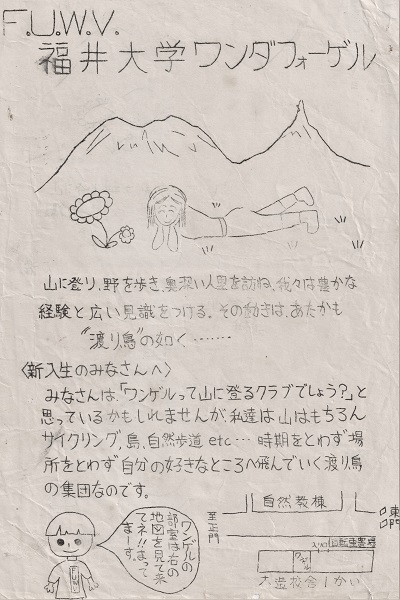 F.U.W.V.
福井大学ワンダフォーゲル
山に登り、野を歩き、奥深い人里を訪ね、我々は豊かな
経験と広い見識をつける。その動きは、あたかも
"渡り鳥"の如く………
〈新入生のみなさんへ〉
みなさんは、「ワンゲルって山に登るクラブでしょう?」と
思っているかもしれませんが、私達は山はもちろん
サイクリング、島、自然歩道 etc… 時期をとわず場
所をとわず自分の好きなところへ飛んでいく渡り鳥
の集団なのです。
ワンゲルの
部室は右の
地図を見て来
てネ!!まって
まーす。
F.U.W.V
自然教棟
至正門
東門
自転車置場
ワンゲル
木造校舎1かい